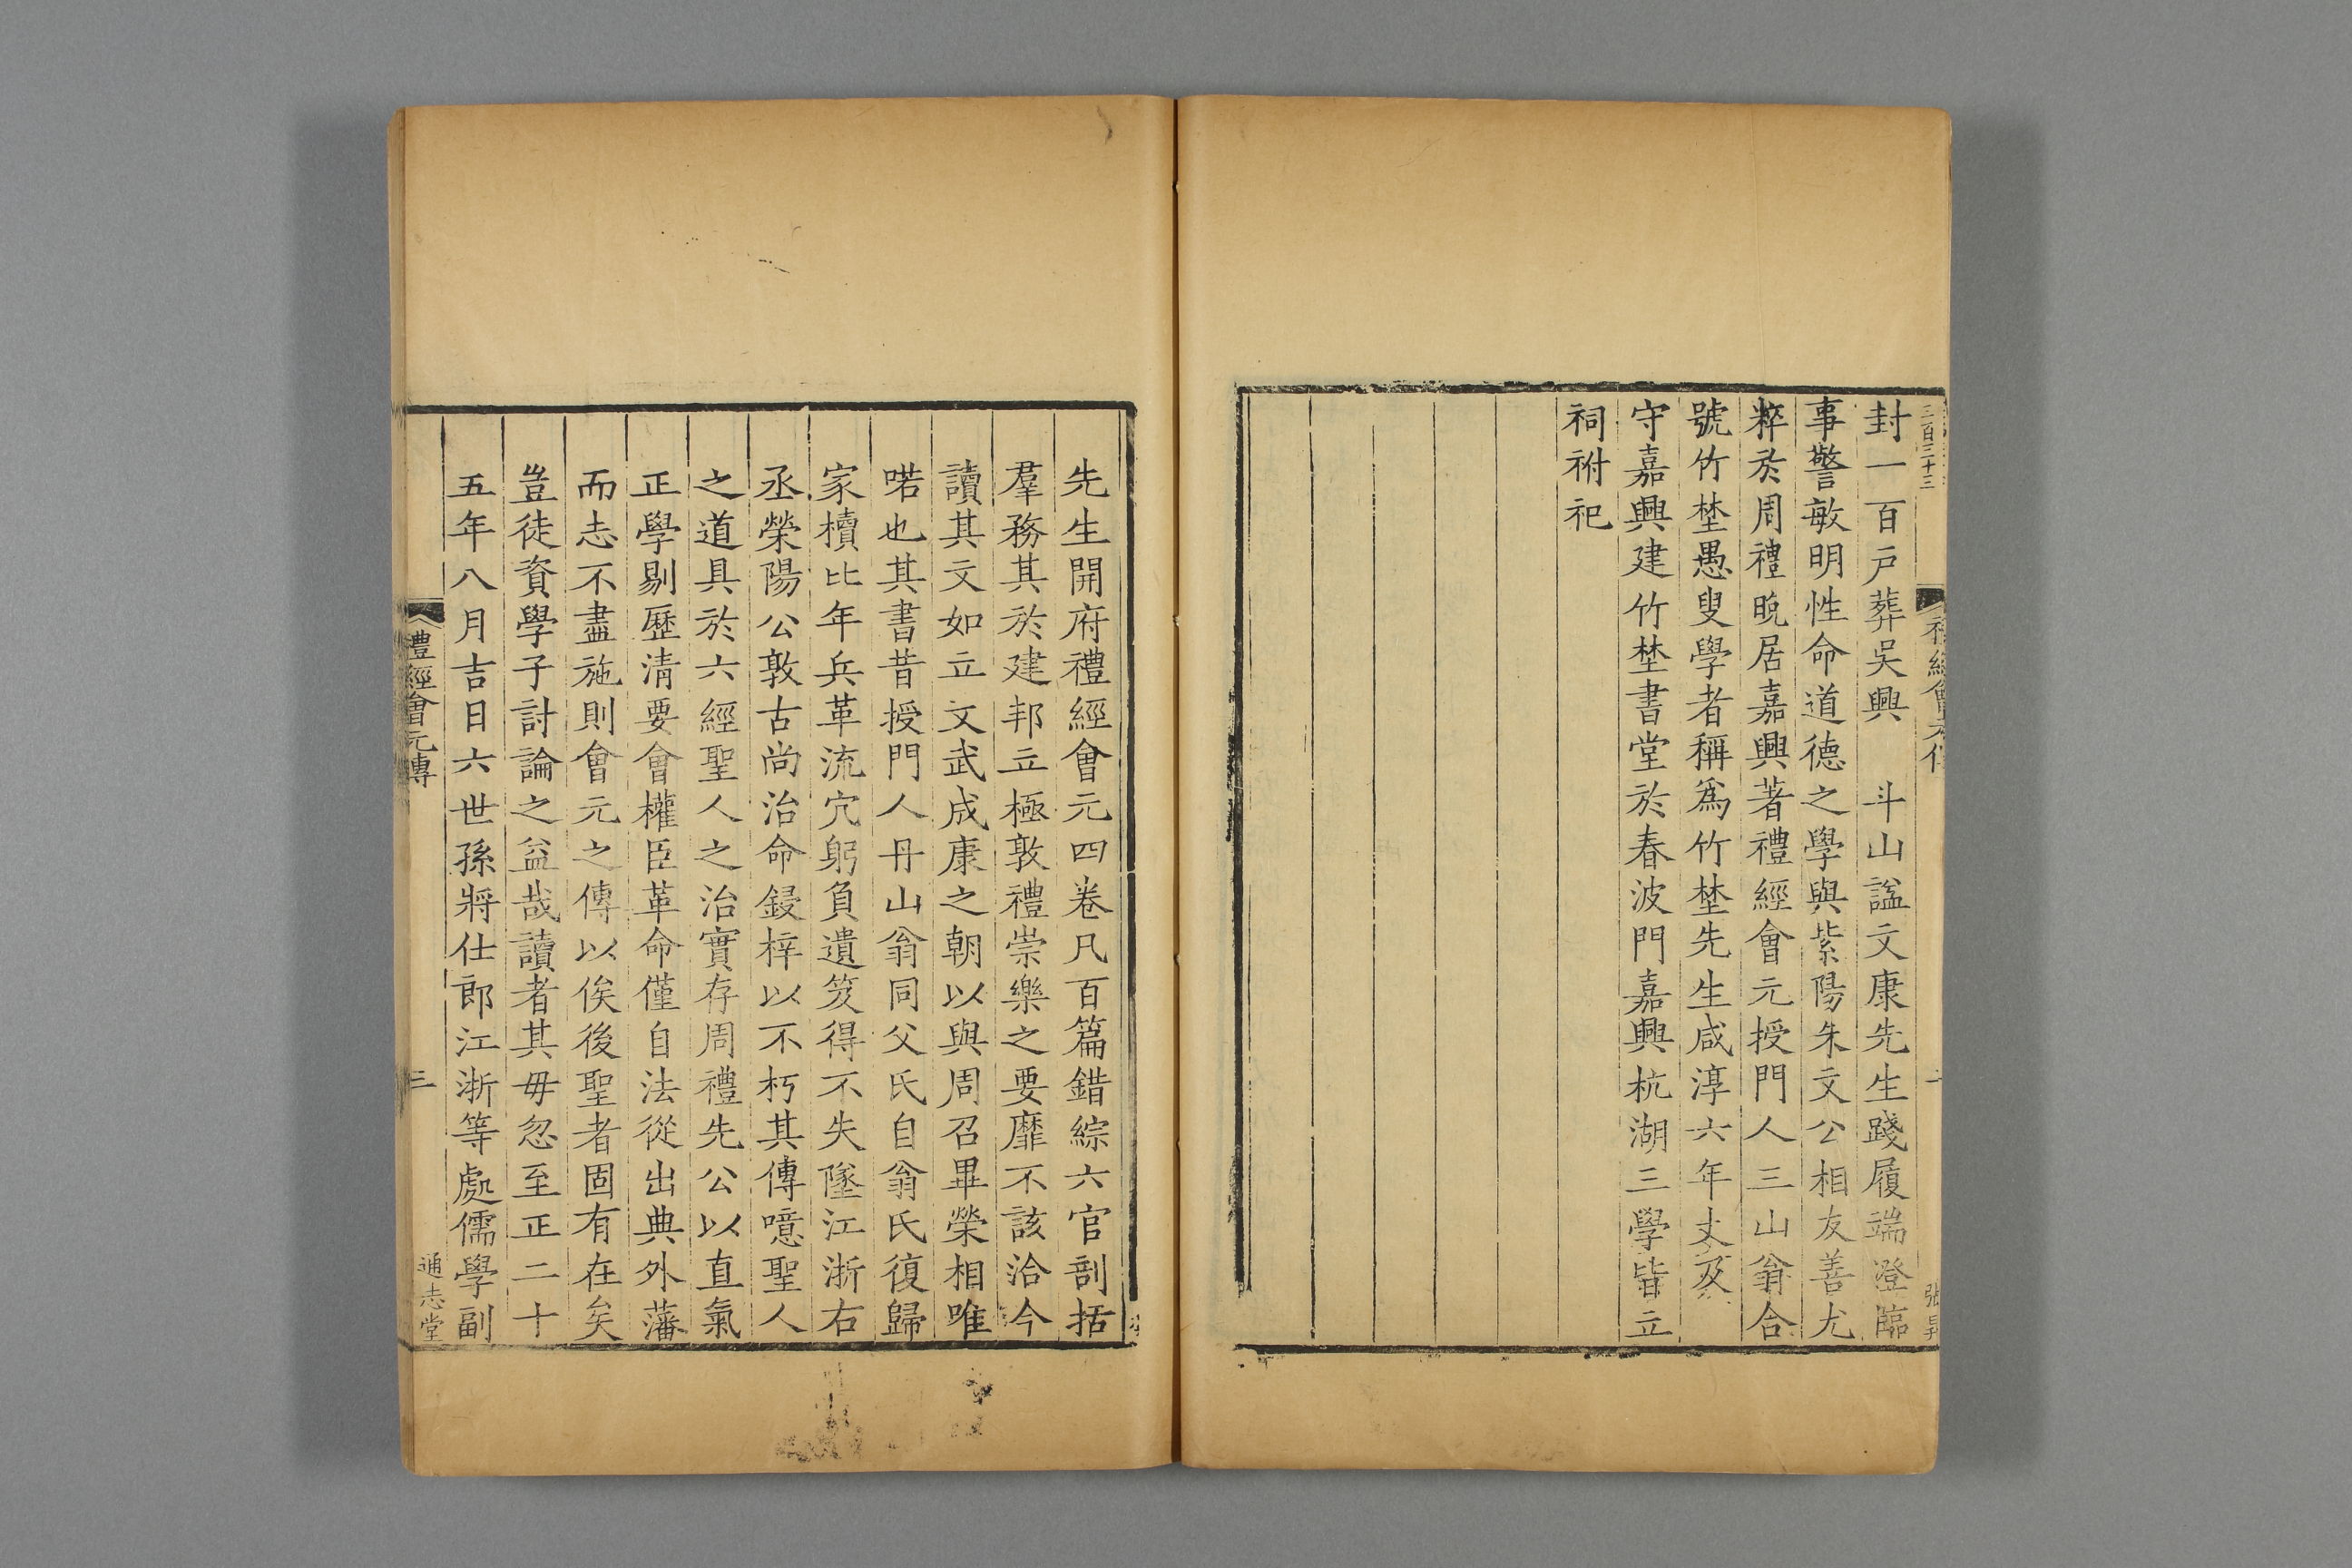 三百三十三
封一百戸葬吳興　斗山諡文康先生踐履端澄臨
事警敏明性命道德之學與紫陽朱文公相友善尤
粹於周禮晩居嘉興著禮經會元授門人三山翁合
號竹埜愚叟學者稱爲竹埜先生咸淳六年丈亥
守嘉興建竹埜書堂於春波門嘉興杭湖三學皆立
祠祔祀
先生開府禮經會元四卷凡百篇錯綜六官剖括
羣務其於建邦立極敦禮崇樂之要靡不該洽今
讀其文如立文武成康之朝以與周召畢榮相唯
喏也其書昔授門人丹山翁同父氏自翁氏復歸
家櫝比年兵革流宂躬負遺笈得不失墜江浙右
丞榮陽公敦古尚治命鋟梓以不朽其傳噫聖人
之道具於六經聖人之治實存周禮先公以直氣
正學剔歷清要會權臣革命僅自法從出典外藩
而志不盡施則會元之傳以俟後聖者固有在矣
豈徒資學子討論之益哉讀者其毋忽至正二十
五年八月吉日六世孫將仕郎江浙等處儒學副
禮經會元傳
三
通志堂